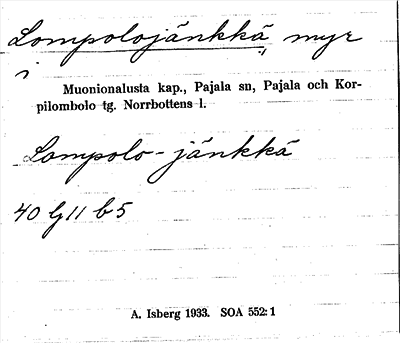 Lompolojänkkä, myr
i
Muonionalusta kap., Pajala sn, Pajala och Kor-
pilombolo tg. Norrbottens l.
Lompolo-jänkkä
40 G 11 b 5
A. Isberg 1933. SOA 552:1